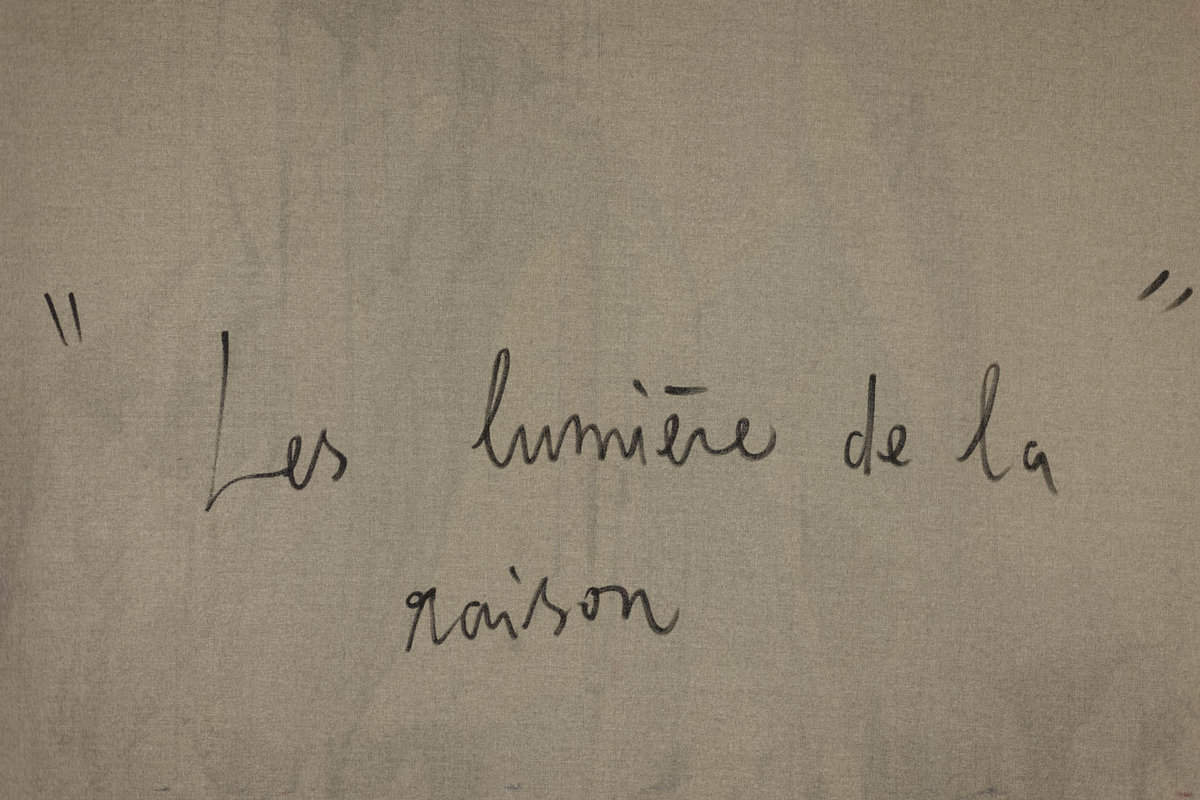 "Les lumière de la"
raison